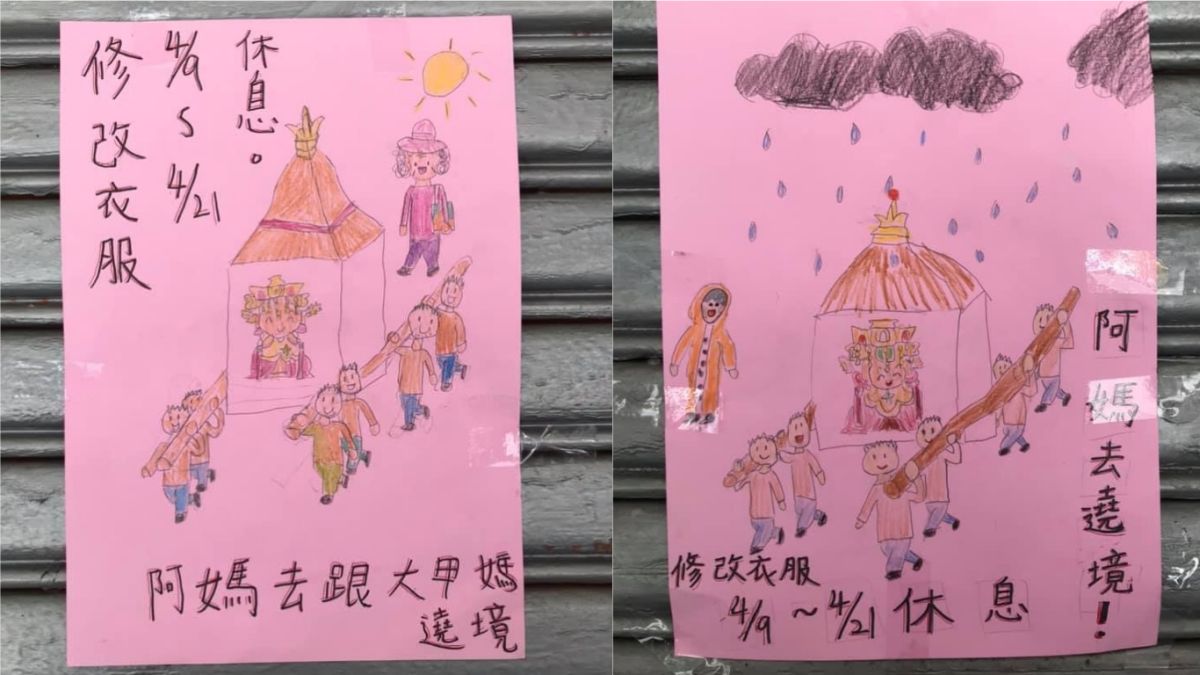 修改衣服
4/9
~
4/21
休息。
阿媽去跟大甲媽
遶境
阿媽去遶境！
修改衣服
4/9~4/21休息